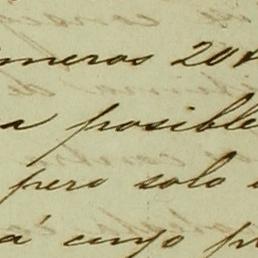 meros 20
a posible
pero solo
á cuyo p